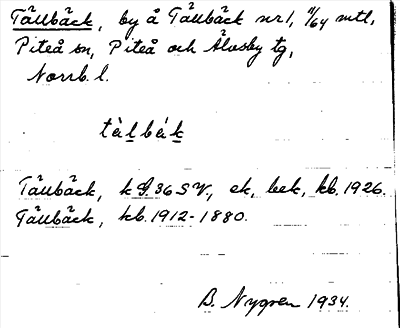 Tållbäck, by å Tållbäck nr 1, 11/64 mtl,
Piteå sn, Piteå och Älvsby tg,
Norrb. l.
tàlbàk
Tållbäck, k S. 36 SV, ek, bek, kb. 1926.
Tållbäck, kb. 1912-1880.
B. Nygren 1934.